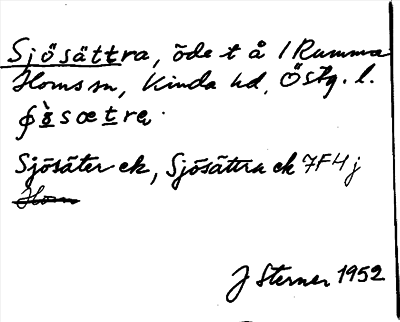 Sjösättra, öde t å 1 Rumma
Horns sn, Kinda hd, Östg. l.
Sjösäter ek, Sjösättra ek 7F4j
Horn
J Sterner 1952